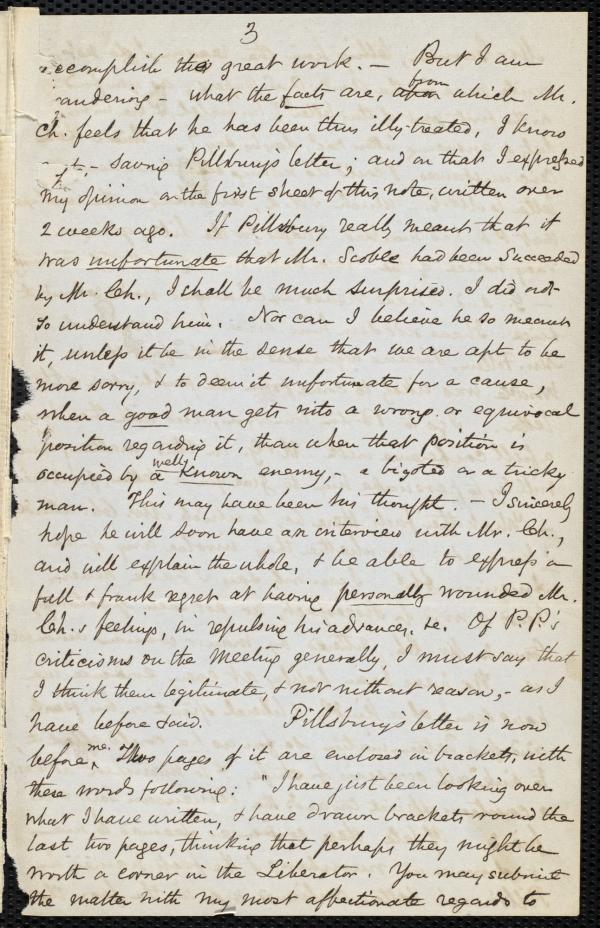 3
accomplish this great work. — But I am
wandering — what the facts are, from which Mr.
Ch. feels that he has been thus illy-treated, I know
not, — saving Pillsbury's letter; and on that I expressed
my opinion on the first sheet of this note, written over
2 weeks ago. If Pillsbury really meant that it
was unfortunate that Mr. Scoble had been succeeded
by Mr. Ch., I shall be much surprised. I did not
so understand him. Nor can I believe he so meant
it, unless it be in the sense that we are apt to be
more sorry, & to deem it unfortunate for a cause,
when a good man gets into a wrong or equivocal
position regarding it, than when that position is
occupied by a well known enemy, — a bigoted or a tricky
man. This may have been his thought. — I sincerely
hope he will soon have an interview with Mr. Ch.,
and will explain the whole, & be able to express a
full & frank regret at having personally wounded Mr.
Ch.s feelings, in repulsing his advances, &c. Of P. P.'s
criticisms on the Meeting generally, I must say that
I think them legitimate, & not without reason, — as I
have before said. Pillsbury's letter is now
before me. Two pages of it are enclosed in brackets, with
these words following: "I have just been looking over
what I have written, & have drawn brackets round the
last two pages, thinking that perhaps they might be
worth a corner in the Liberator. You may submit
the matter with my most affectionate regards to